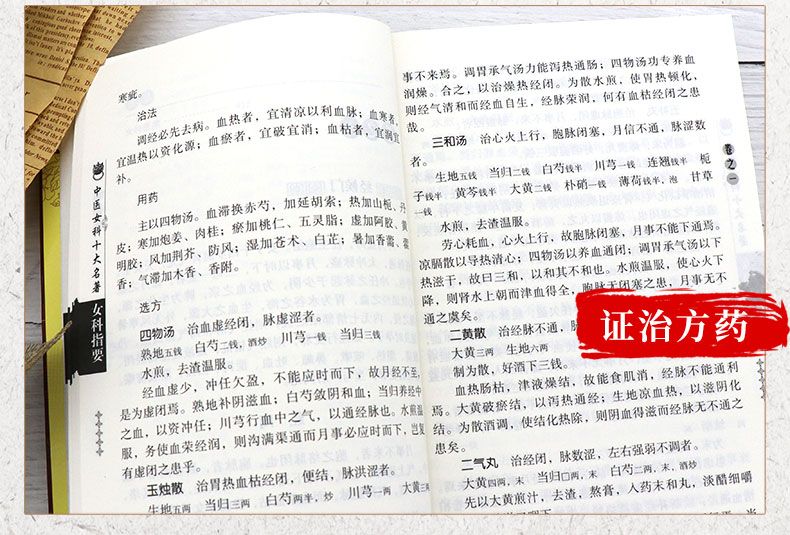 寒疝。
治法
调经必先去病。血热者，宜清凉以利血脉；血寒者，
宜温热以资化源；血瘀者，宜破宜消；血枯者，宜润宜
补。
用药
主以四物汤。血滞换赤芍，加延胡索；热加山栀、丹
皮；寒加炮姜、肉桂；瘀加桃仁、五灵脂；虚加阿胶、黄
明胶；风加荆芥、防风；湿加苍术、白芷；暑加香薷、藿
香；气滞加木香、香附。
选方
四物汤 治血虚经闭，脉虚涩者。
熟地五钱 白芍二钱，酒炒 川芎一钱 当归三钱
水煎，去渣温服。
经血虚少，冲任欠盈，不能应时而下，故月经不至，
是为虚闭焉。熟地补阴滋血；白芍敛阴和血；当归养经中
之血，以资冲任；川芎行血中之气，以通经脉也。水煎温
服，务使血荣经润，则沟满渠通而月事必应时而下，岂复
有虚闭之患乎。
玉烛散 治胃热血枯经闭，便结，脉洪涩者。
生地五两 当归三两 白芍两半，炒 川芎一两 大黄三两
中医女科十大名著
女科指要
事不来焉。调胃承气汤力能泻热通肠；四物汤功专养血
润燥。合之，以治燥热经闭。为散水煎，使胃热顿化，
则经气清和而经血自生，经脉荣润，何有血枯经闭之患
哉。
三和汤 治心火上行，胞脉闭塞，月信不通，脉涩数
者。
生地五钱 当归二钱 白芍钱半 川芎一钱 连翘钱半 栀
子钱半 黄芩钱半 大黄二钱 朴硝一钱 薄荷钱半，泡 甘草
一钱
水煎，去渣温服。
劳心耗血，心火上行，故胞脉闭塞，月事不能下通焉。
凉膈散以导热清心；四物汤以养血通闭；调胃承气汤以下
热滋干，故曰三和，以和其不和也。水煎温服，使心火下
降，则肾水上朝而津血得全，胞脉无闭塞之患，月事无不
通之虞矣。
二黄散 治经脉不通，脉
大黄三两 生地六两
制为散，好酒下三钱。
血热肠枯，津液燥结，故能食肌消，经脉不能通利
焉。大黄破瘀结，以泻热通经；生地凉血热，以滋阴化
结。为散酒调，使结化热除，则阴血得滋而经脉无不通之
患矣。
二气丸 治经闭，脉数涩，左右强弱不调者。
大黄四两，末 当归□两，末 白芍二两，末，酒炒
先以大黄煎汁，去渣，熬膏，入药末和丸，淡醋细嚼
卷之一
证治方药